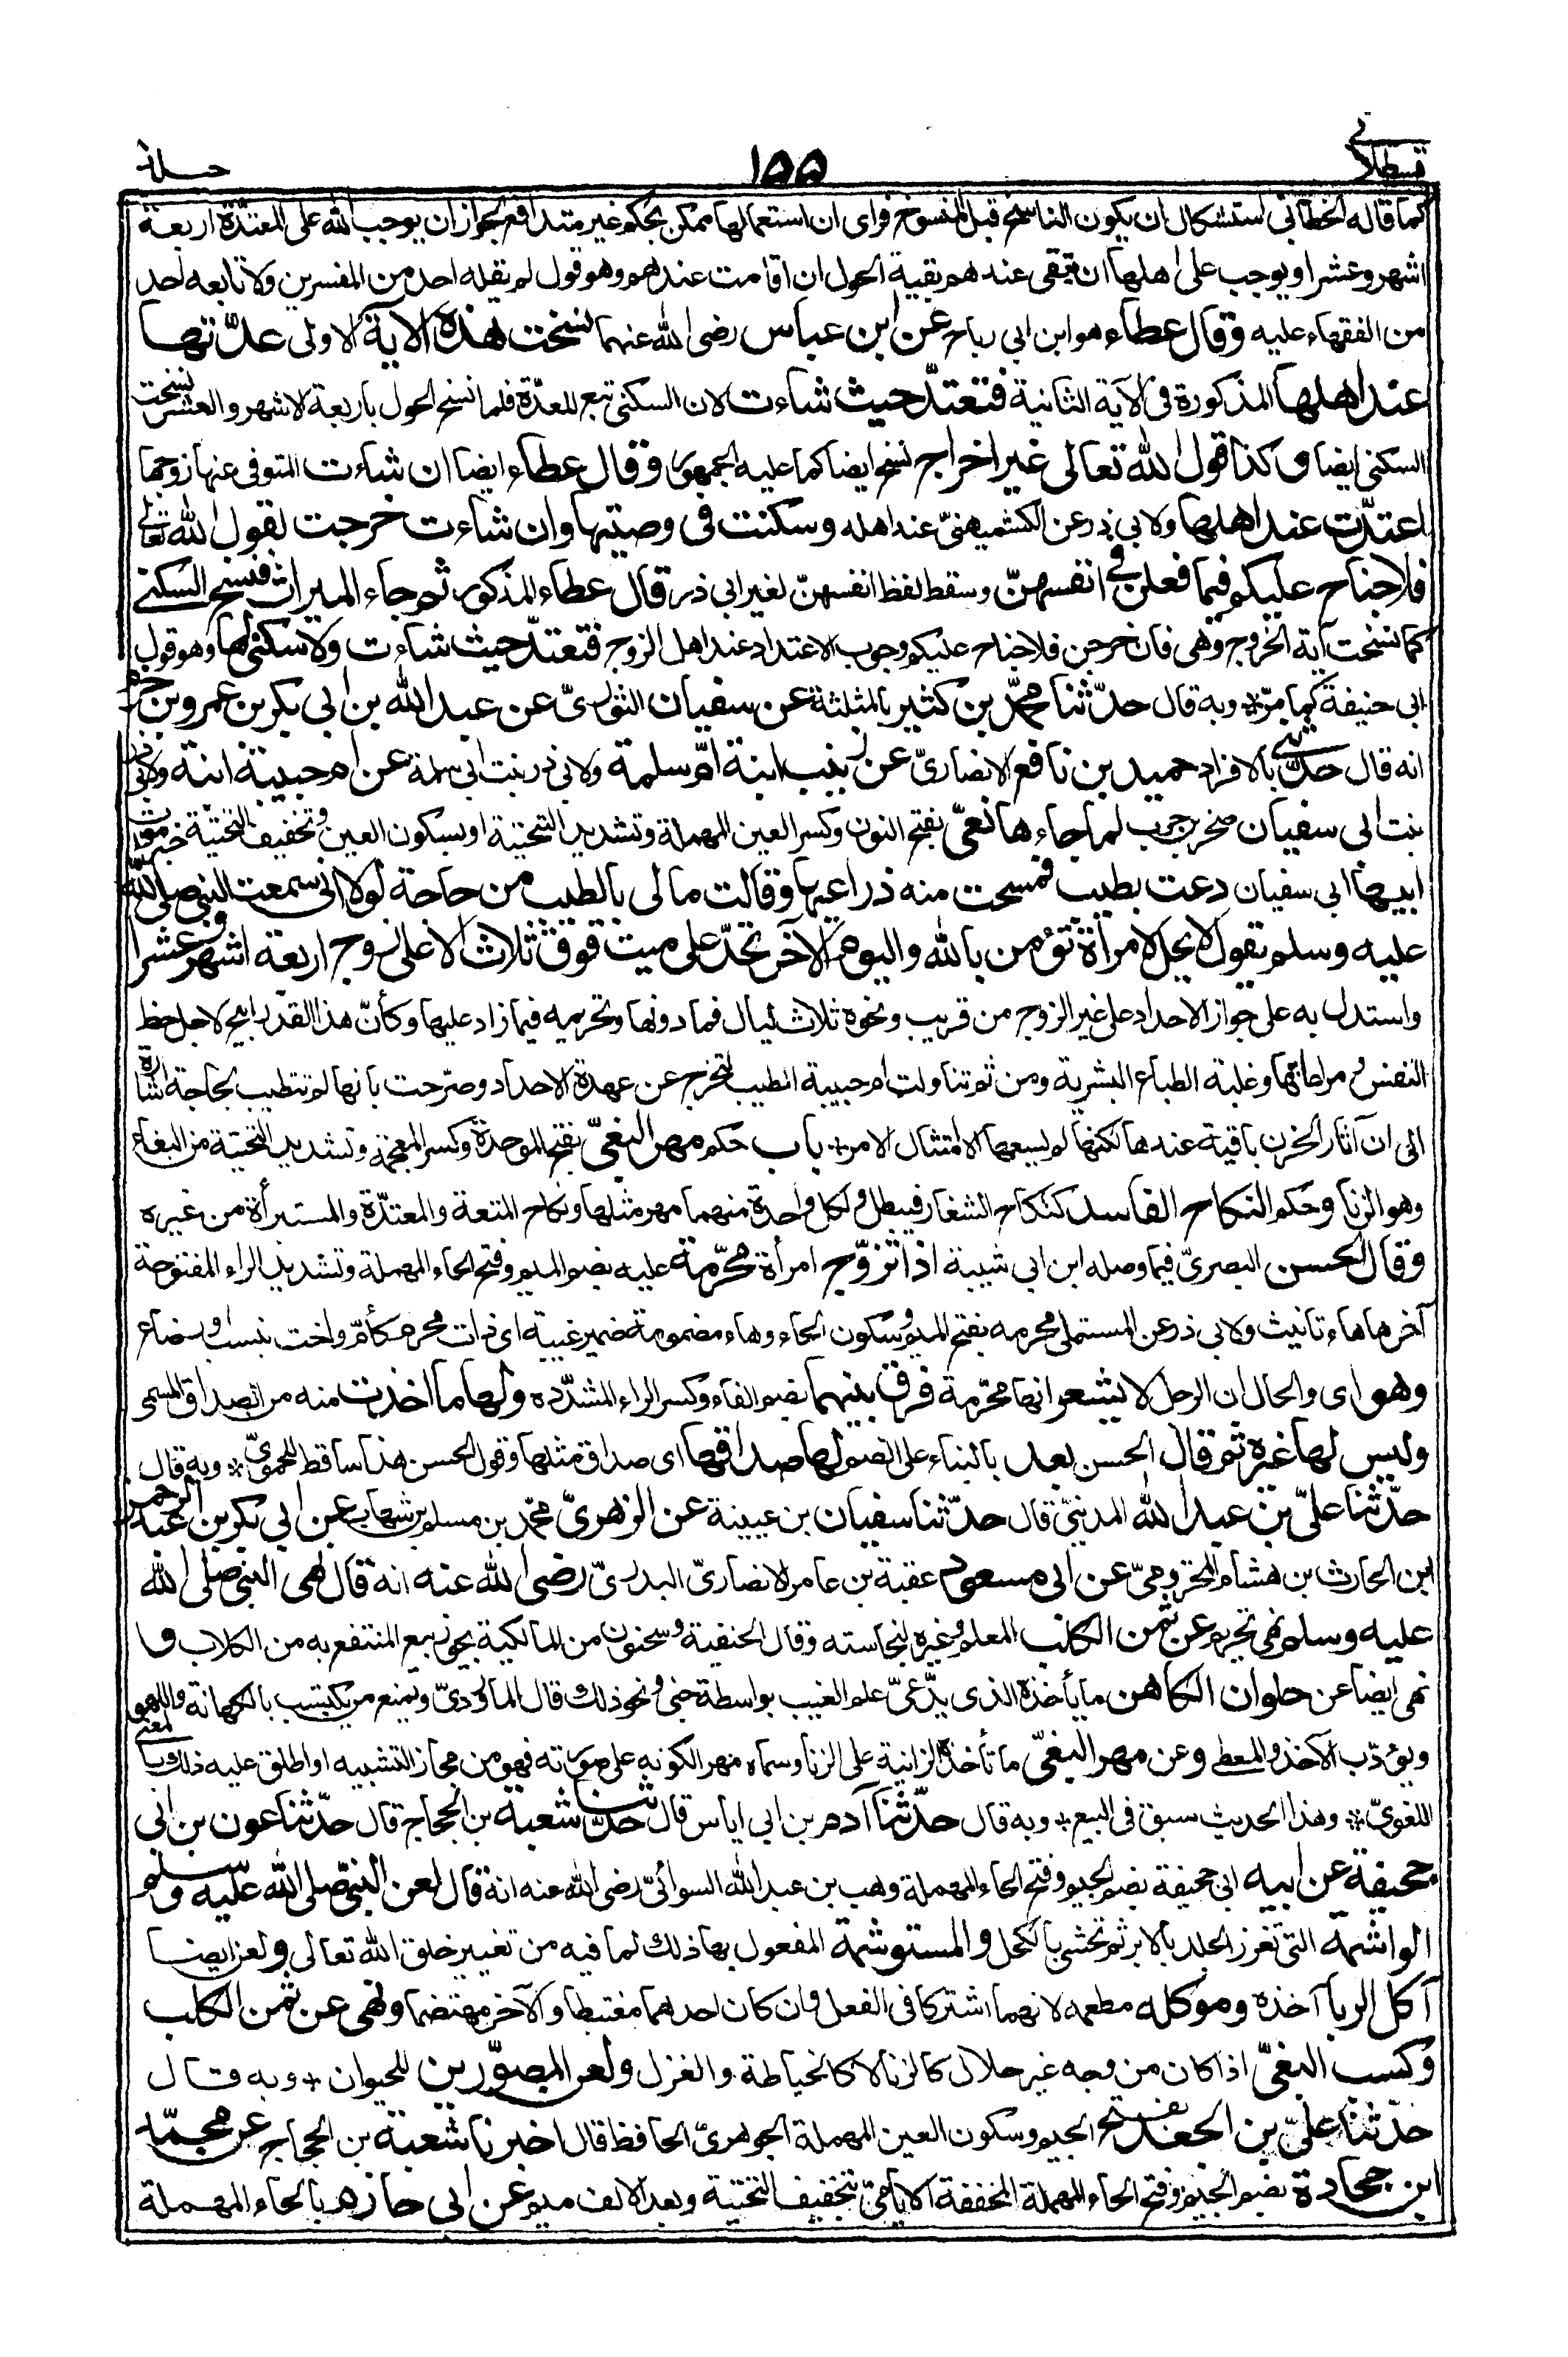 قسطلانی ١٥٥
كما قاله الخطابي استشكال ان يكون الناسخ قبل المنسوخ فراى ان استعمالها ممكن بحكم غير متدافع لجواز ان يوجب الله على المعتدّة اربعة
اشهر وعشرا ويوجب على اهلها ان تبقى عندهم بقية الحول ان اقامت عندهم وهو قول لم يقله احد من المفسرين ولا تابعه احد
من الفقهاء عليه وقال عطاء هو ابن ابي رباح عن ابن عباس رضى الله عنهما نسخت هذه الاية الاولى عدّتها
عند اهلها المذكورة في الآية الثانية فتعتدّ حيث شاءت لان السكنى تبع للعدّة فلما نسخ الحول باربعة الاشهر والعشر نسخت
السكنى ايضا وكذا قول الله تعالى غير اخراج نسخ ايضا كما عليه الجمهور وقال عطاء ايضا ان شاءت المتوفى عنها زوجها
اعتدّت عند اهلها ولابي ذر عن الكشميهنيّ عند اهله وسكنت في وصيتها وان شاءت خرجت لقول الله تعالى
فلا جناح عليكم فيما فعلن في انفسهنّ وسقط لفظ انفسهنّ لغير ابي ذر قال عطاء المذكور ثم جاء الميراث فنسخ السكنى
كما نسخت آية الخروج وهى فان خرجن فلا جناح عليكم وجوب الاعتداد عند اهل الزوج فتعتدّ حيث شاءت ولا سكنى لها وهو قول
ابى حنيفة كما مرّ * وبه قال حدّثنا محمّد بن كثير بالمثلثة عن سفيان الثوريّ عن عبد الله بن ابى بكر بن عمرو بن حزم
انه قال حدّثنى بالافراد حميد بن نافع الانصاريّ عن زينب ابنة امّ سلمة ولابي ذر بنت ابى سلمة عن ام حبيبة ابنة ولابي ذر
بنت ابى سفيان صخر بن حرب لما جاءها نعيّ بفتح النون وكسر العين المهملة وتشديد التحتية او بسكون العين وتخفيف التحتيّة خبر موت
ابيها ابى سفيان دعت بطيب فمسحت منه ذراعيها وقالت مالى بالطيب من حاجة لولا انى سمعت النبى صلى الله
عليه وسلم يقول لا يحل لامرأة تؤمن بالله واليوم الآخر تحدّ على ميت فوق ثلاث الا على زوج اربعة اشهر وعشرا
واستدل به على جواز الاحداد على غير الزوج من قريب ونحوه ثلاث ليال فما دونها وتحريمه فيما زاد عليها وكأنّ هذا القدر ابيح لاجل حظ
النفس ومراعاتها وغلبة الطباع البشرية ومن ثم تناولت ام حبيبة الطيب لتخرج عن عهدة الاحداد وصرّحت بانها لم تتطيب لحاجة اشارة
الى ان آثار الحزن باقية عندها لكنها لم يسعها الا امتثال الامر * باب حكم مهر البغيّ بفتح الموحدة وكسر المعجمة وتشديد التحتية من البغاء
وهو الزنا وحكم النكاح الفاسد كنكاح الشغار فيبطل ولكل واحدة منهما مهر مثلها ونكاح المتعة والمعتدّة والمستبرأة من غيره
وقال الحسن البصريّ فيما وصله ابن ابى شيبة اذا تزوّج امرأة محرّمة عليه بضم الميم وفتح الحاء المهملة وتشديد الراء المفتوحة
آخرها هاء تانيث ولابي ذر عن المستملى محرمه بفتح الميم وسكون الحاء وهاء مضمومة ضمير غيبة اى ذات محرم كأمّ واخت بنسب ورضاع
وهو اى والحال ان الرجل لا يشعر انها محرّمة فرق بينهما بضم الفاء وكسر الراء المشدّده ولها ما اخذت منه من الصداق المسمى
وليس لها غيره ثم قال الحسن بعد بالبناء على الضم لها صداقها اى صداق مثلها وقول الحسن هذا ساقط للحمويّ * وبه قال
حدّثنا علىّ بن عبد الله المدينىّ قال حدّثنا سفيان بن عيينة عن الزهرىّ محمّد بن مسلم بن شهاب عن ابى بكر بن عبد الرحمن
ابن الحارث بن هشام المخزومىّ عن ابى مسعود عقبة بن عامر الانصارىّ البدرىّ رضى الله عنه انه قال نهى النبى صلى الله
عليه وسلم نهى تحريم عن ثمن الكلب المعلم وغيره لنجاسته وقال الحنفية وسحنون من المالكية يجوز بيع المنتفع به من الكلاب و
نهى ايضا عن حلوان الكاهن ما يأخذه الذى يدّعىّ علم الغيب بواسطة جنى ونحو ذلك قال الماوردىّ ويمنع من يكتسب بالكهانة واللهو
ويؤدّب الآخذ والمعطى وعن مهر البغىّ ما تأخذه الزانية على الزنا وسماه مهر الكونه على صورته فهو من مجاز التشبيه او اطلق عليه ذلك بالمعنى
اللغوىّ * وهذا الحديث سبق فى البيع * وبه قال حدّثنا آدم بن ابى اياس قال حدّثنا شعبة بن الحجاج قال حدّثنا عون بن ابى
جحيفة عن ابيه ابى جحيفة بضم الجيم وفتح الحاء المهملة وهب بن عبد الله السوائىّ رضى الله عنه انه قال لعن النبىّ صلى الله عليه وسلم
الواشمة التى تغرز الجلد بالابر ثم تحشى بالكحل والمستوشمة المفعول بها ذلك لما فيه من تغيير خلق الله تعالى ولعن ايضا
آكل الربا آخذه وموكله مطعمه لانهما اشتركا فى الفعل وان كان احدهما مغتبطا والآخر مهتضما ونهى عن ثمن الكلب
وكسب البغىّ اذا كان من وجه غير حلال كالزنا لا كالخياطة والغزل ولعن المصوّرين للحيوان * وبه قال
حدّثنا علىّ بن الجعد بفتح الجيم وسكون العين المهملة الجوهرىّ الحافظ قال اخبرنا شعبة بن الحجاج عن محمّد
ابن جحادة بضم الجيم وفتح الحاء المهملة المخففة الايامىّ بتخفيف التحتية وبعد الالف ميم عن ابى حازم بالحاء المهملة